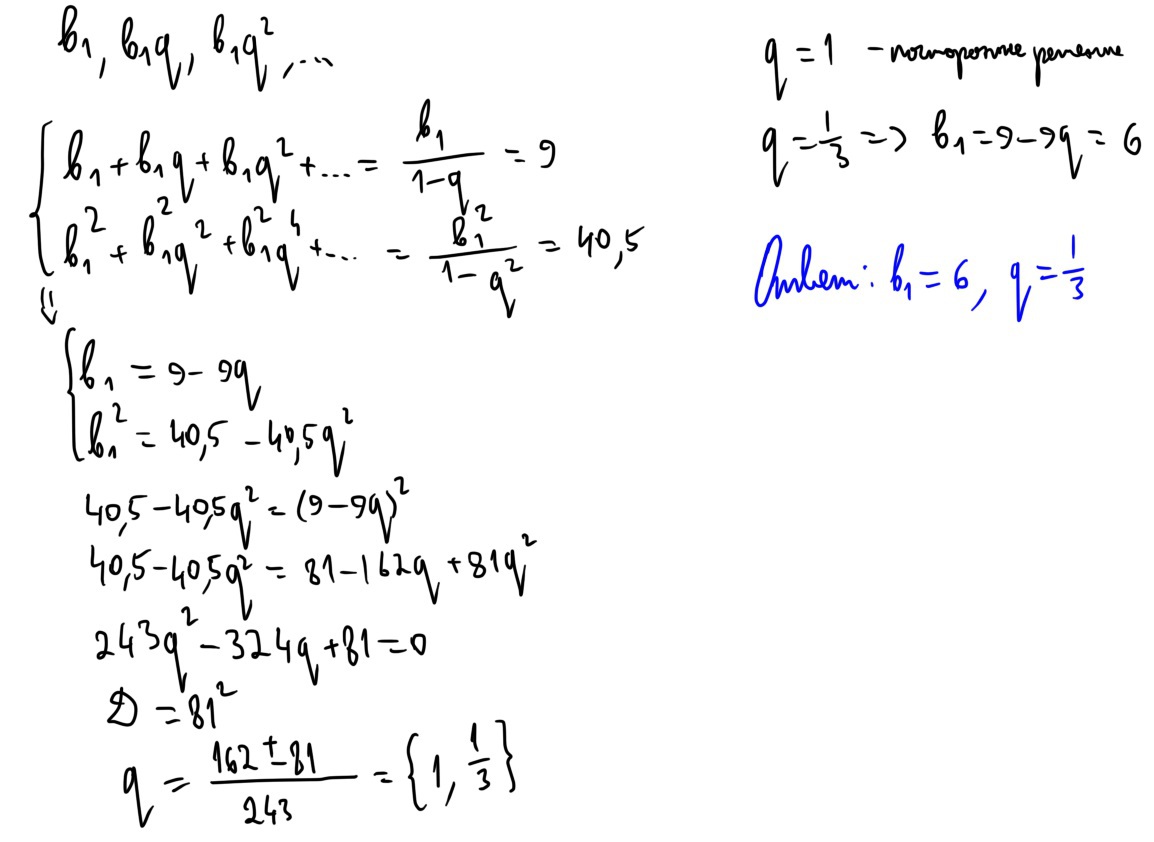 b₁, b₁q, b₁q², ...
b₁ + b₁q + b₁q² + ... = b₁/(1-q) = 9
b₁² + b₁²q² + b₁²q⁴ + ... = b₁²/(1-q²) = 40,5
⇓
b₁ = 9 - 9q
b₁² = 40,5 - 40,5q²
40,5 - 40,5q² = (9 - 9q)²
40,5 - 40,5q² = 81 - 162q + 81q²
243q² - 324q + 81 = 0
D = 81²
q = (162 ± 81)/243 = {1, 1/3}
q = 1 - посторонние решение
q = 1/3 => b₁ = 9 - 9q = 6
Ответ: b₁ = 6, q = 1/3